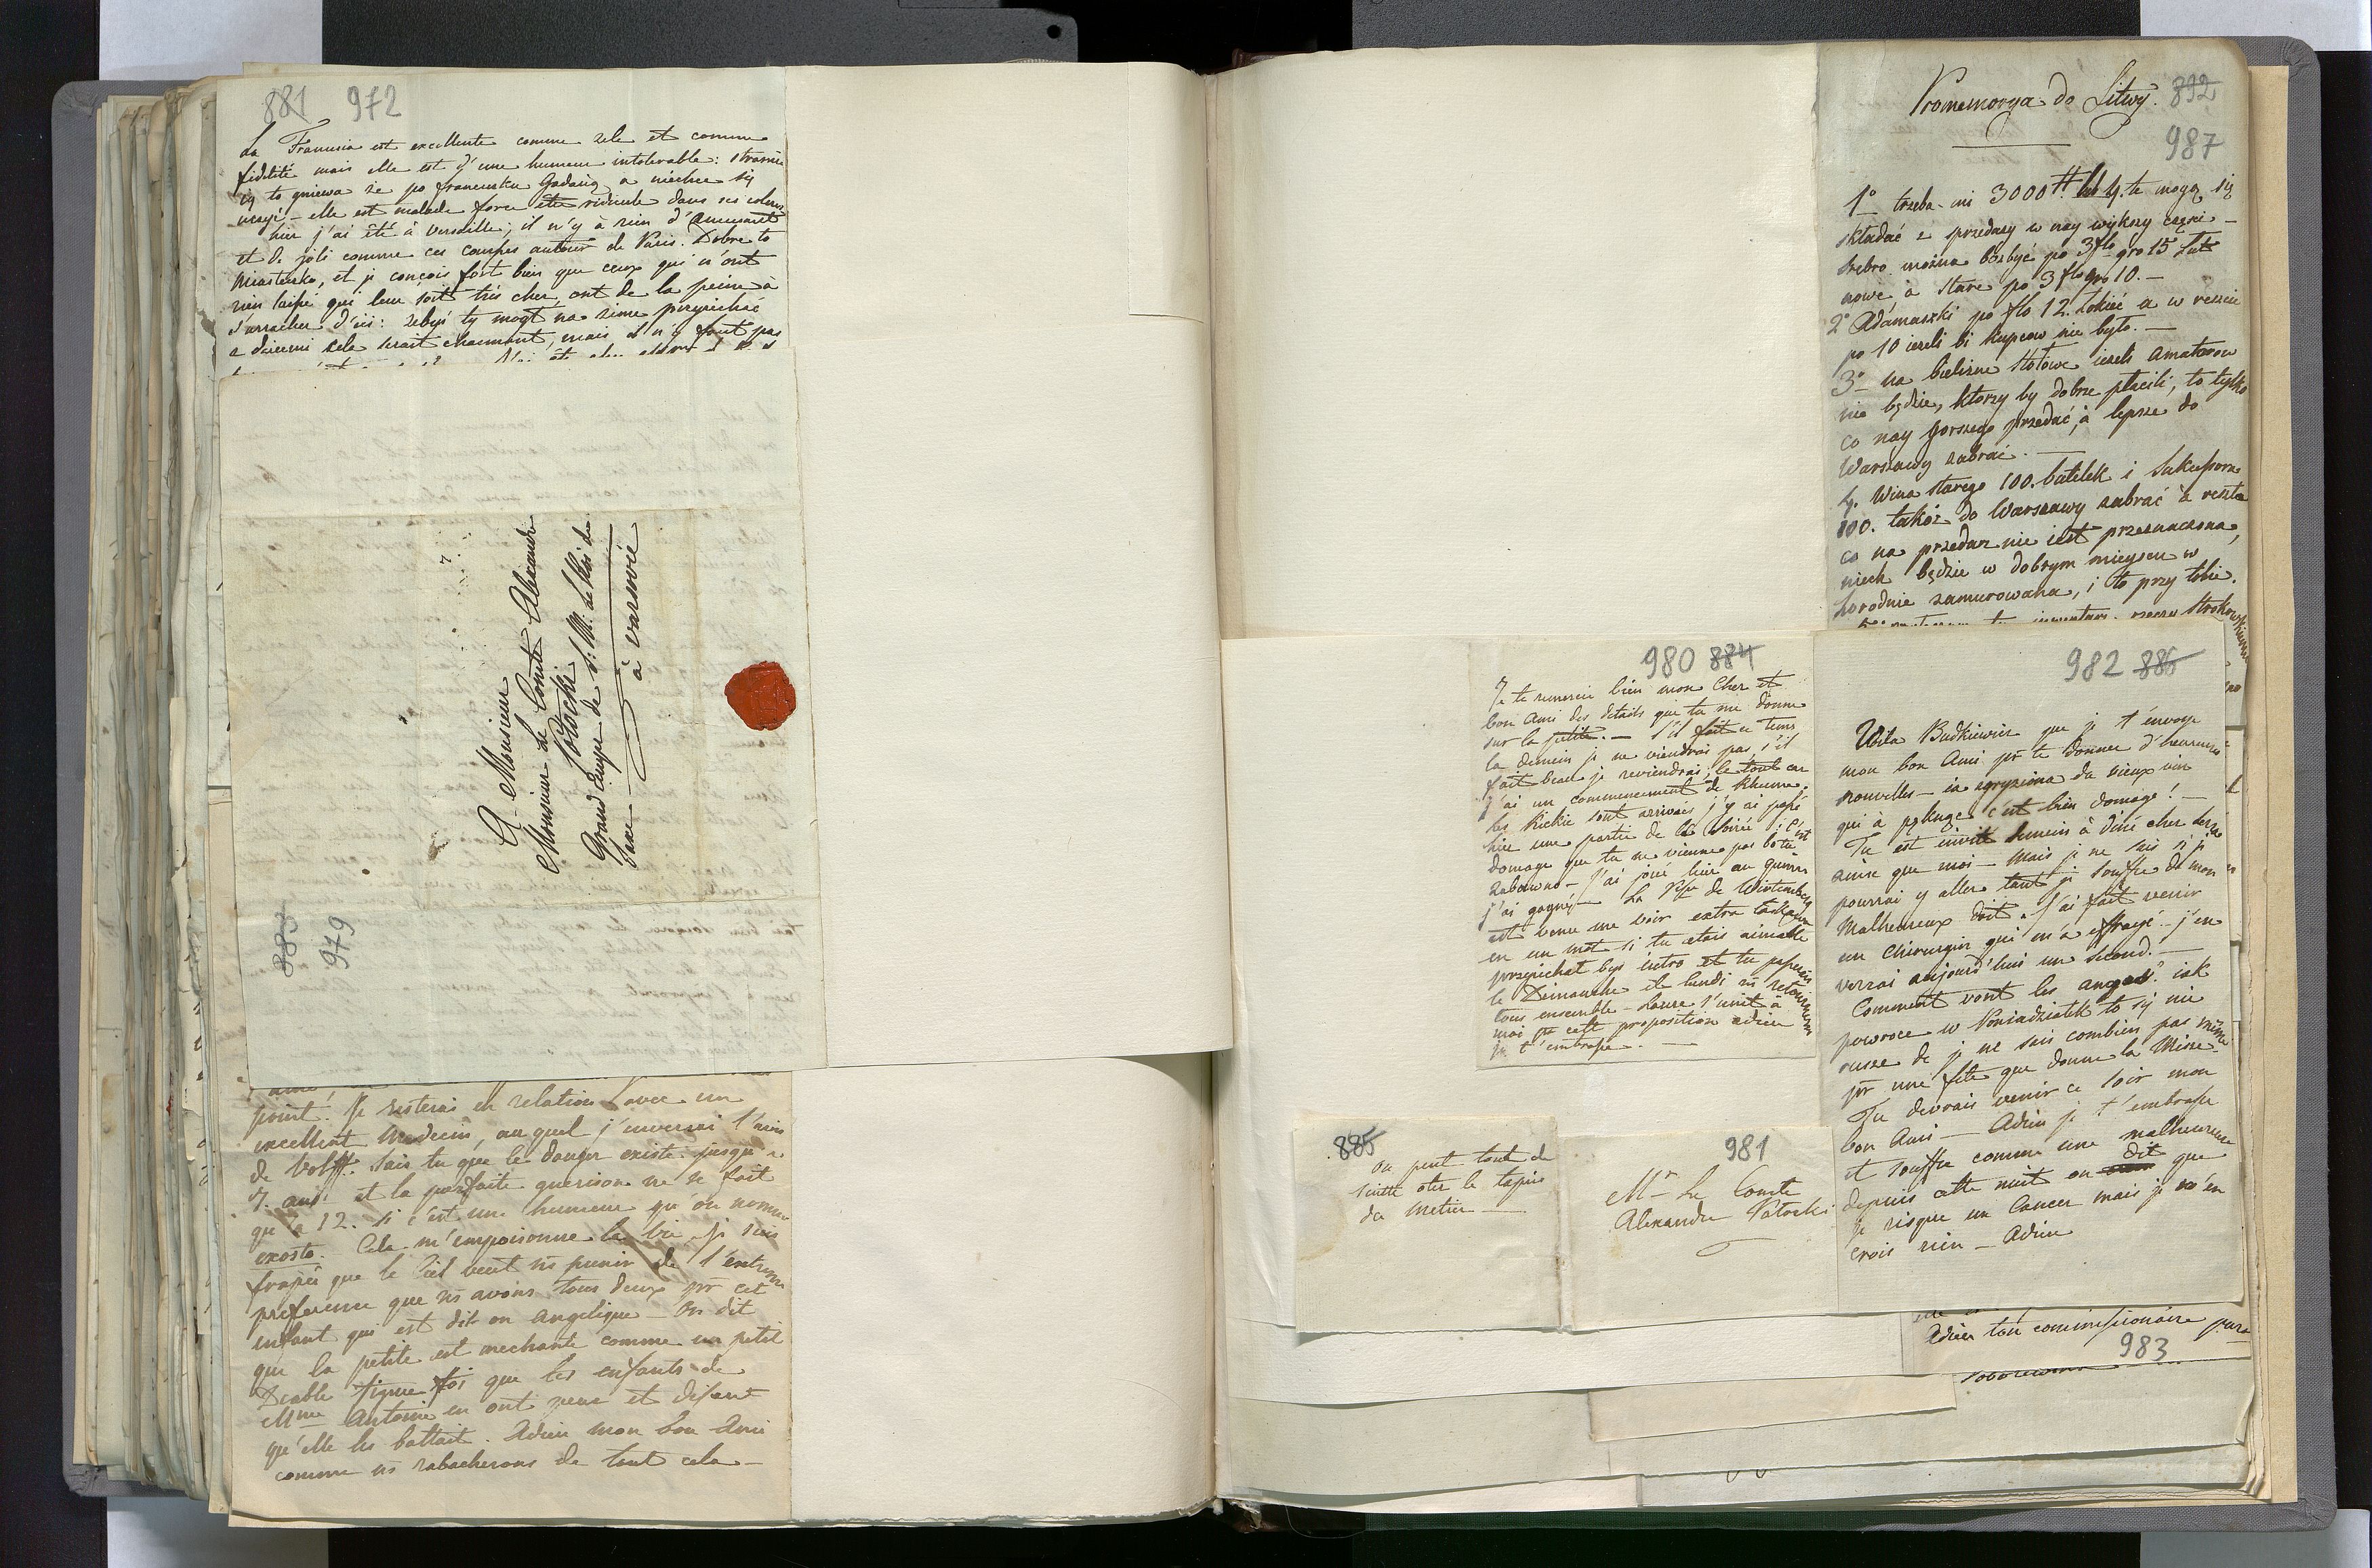 881 972
La Franusia est excellente comme zele et comme
fidelité mais elle est d'une humeur intolerable: strasznie
ią to gniewa że po francusku Gadaią, a niechce się
uczyć - elle est malade force être ridicule dans ses
hier j'ai été à Versaille, il n'y à rien d'amusant
et de joli comme ces courses autour de Paris. Dobre to
Miasteczko, et je conçois fort bien que ceux qui n'ont
rien laissé qui leur soit très cher, ont de la peine à
s'arracher d'ici: żebyś ty mogł na zime przyiechać
z dziecmi cela serait charmant, mais il n'y faut pas
A Monsieur
Monsieur Le Comte Alexandre
Potocki
Grand Ecuyer de S: M: le Roi de
Saxe
à varsovie
883
979
point. Je resterai en relation avec un
excellent Medecin, au quel j'enverrai l'avis
de Wolff. Sais tu que le danger existe jusqu'a
7. ans et la parfaite guerison ne se fait
qu'à 12. si c'est une humeur qu'on nomme
exosto. Cela m'empoisonne la vie. Je suis
frapée que le Ciel veut ns punir de l'extreme
preference que ns avons tous deux pr cet
enfant qui est dit on Angelique - On dit
que la petite est mechante comme un petit
Diable figure toi que les enfants de
Mme Antoine en ont peur et disent
qu'elle les battait. Adieu mon bon Ami
comme ns rabacherons de tout cela -
Promemorya do Litwy. 892
987
1° trzeba mi 3000 # te mogą się
składać z sprzedaży w nay większy częsci -
srebro można pozbyć po 3 flo gro 15 Łut
nowe, à stare po 3 flo gro 10. -
2° Adamaszki po flo 12. Łokieć a w reszcie
po 10 iezeli bi kupcow nie było. -
3° na bielizne stołowe iezeli amatorow
nie będzie, ktorzy by dobrze płacili, to tylko
co nay gorszego przedać, à lepsze do
Warszawy zabrać. -
4. Wina starego 100. butelek i Szaky
100. takoż do Warszawy zabrać à reszta
co na przedaz nie iest przeznaczona,
niech będzie w dobrym mieyscu w
horodnie zamurowana, i to przy tobie.
980 884
Je te remercie bien mon cher et
bon Ami des details que tu me donne
sur la petite. - s'il fait ce tems
la demein je ne viendrai pas, s'il
fait beau je reviendrai; le tout car
j'ai un commencement de Rhume.
les Rickie sont arrivés j'y ai passé
hier une partie de la soirée; c'est
domage que tu ne vienne pas bo tu
zabawno - j'ai joué hier au quinze
j'ai gagné - La Psse de Wirtemberg
est venu me voir extra Łaskawa
en un mot si tu etais aimable
przyiechał bys iutro et tu passerais
le Dimanche et le lundi ns retournerons
tous ensemble - Laure s'unit à
moi pr cette proposition adieu
je t'embrasse. -
982 886
Voila Budkiewicz que je t'envoye
mon bon Ami pr te donner d'heureuses
nouvelles - ia zgryziona du vieux vin
qui à pęknąc c'est bien domage! -
Tu est invité demein à diné chez
ainsi que moi - Mais je ne sais si je
pourrai y aller tant je souffre de mon
Malheureux doit. J'ai fait venir
un Chirurgien qui m'a effrayé. j'en
verrai aujourd'hui un second. -
Comment vont les anges? iak
powroce w Poniedziatek to się nie
rusze de je ne sais combien pas même
pr une fête que donne la Misse.
Tu devrais venir ce soir mon
bon Ami - Adieu je t'embrasse
et souffre comme une malheureuse
depuis cette nuit on dit que
je risque un Cancer mais je n'en
crois rien - Adieu
885
On peut tout de
suitte oter le tapis
du metier -
981
Mr Le Comte
Alexandre Potocki
Adieu ton commissionaire
983